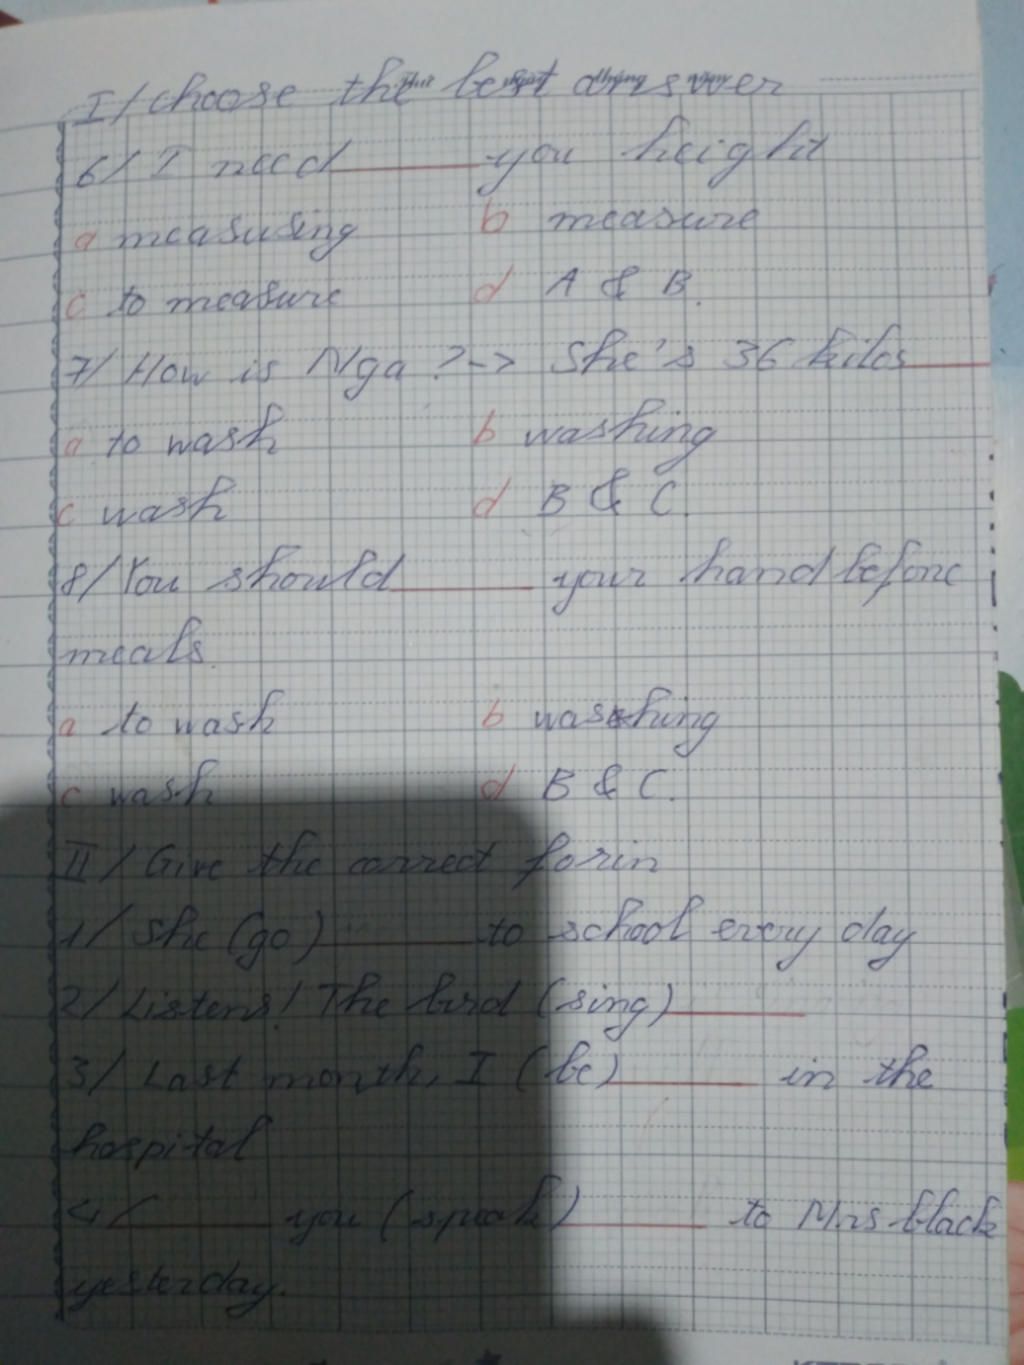 I/ choose the best answer
6/ I need ____ you height
a measusing b measure
c to measure d A & B.
7/ How is Nga ? -> She's 36 kilos ____
a to wash b washing
c wash d B & C.
8/ You should ____ your hand before
meals.
a to wash b washing
c wash d B & C.
II/ Give the correct form
1/ She (go) ____ to school every day
2/ Listens! The bird (sing) ____
3/ Last month, I (be) ____ in the
hospital
4/ ____ you (speak) ____ to Mrs black
yesterday.